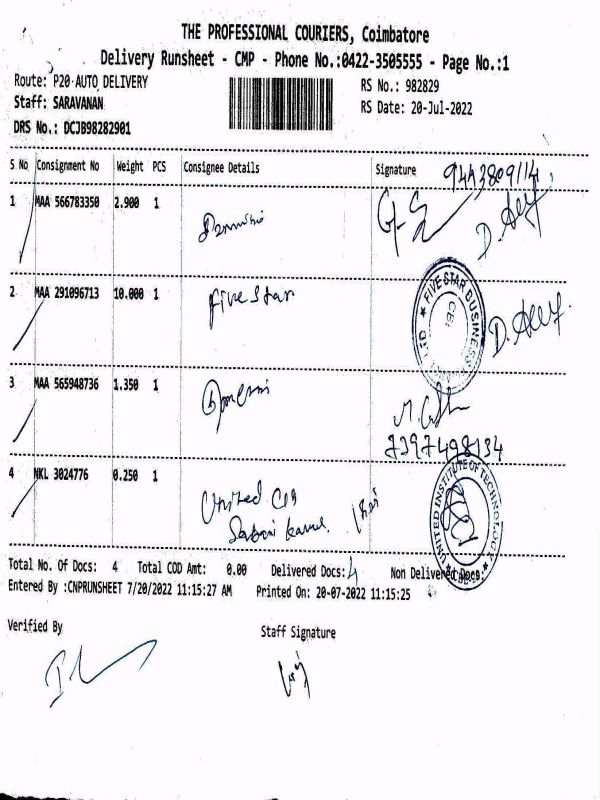 THE PROFESSIONAL COURIERS, Coimbatore
Delivery Runsheet - CMP - Phone No.:0422-3505555 - Page No.:1
Route: P20 AUTO DELIVERY RS No.: 982829
Staff: SARAVANAN RS Date: 20-Jul-2022
DRS No.: DCJB98282901
S No Consignment No Weight PCS Consignee Details Signature 9443809114
1 MAA 566783350 2.900 1
2 MAA 291096713 10.000 1 Five Star FIVE STAR BUSINESS LTD CBE
3 MAA 565948736 1.350 1
7397498134
4 NKL 3024776 0.250 1 United UNITED INSTITUTE OF TECHNOLOGY
Total No. Of Docs: 4 Total COD Amt: 0.00 Delivered Docs: 4 Non Delivered Docs:
Entered By :CNPRUNSHEET 7/20/2022 11:15:27 AM Printed On: 20-07-2022 11:15:25
Verified By Staff Signature